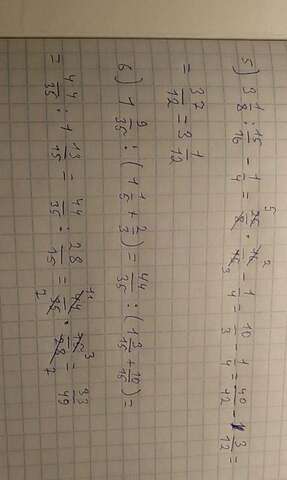 5) 3 1/8 : 15/16 - 1/4 = 25/8 · 16/15 - 1/4 = 10/3 - 1/4 = 40/12 - 3/12 =
= 37/12 = 3 1/12
6) 1 9/35 : (1 1/5 + 2/3) = 44/35 : (1 3/15 + 10/15) =
= 44/35 : 1 13/15 = 44/35 : 28/15 = 44/35 · 15/28 = 33/49